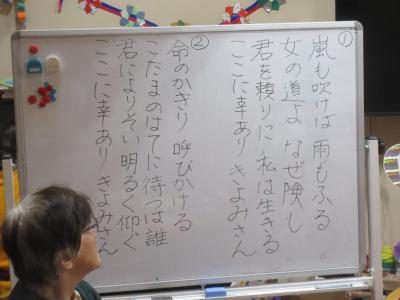 ①
嵐も吹けば 雨もふる
女の道よ なぜ険し
君を頼りに 私は生きる
ここに幸あり きよみさん
②
命のかぎり 呼びかける
こだまのはてに 待つは誰
君によりそい 明るく仰ぐ
ここに幸あり きよみさん